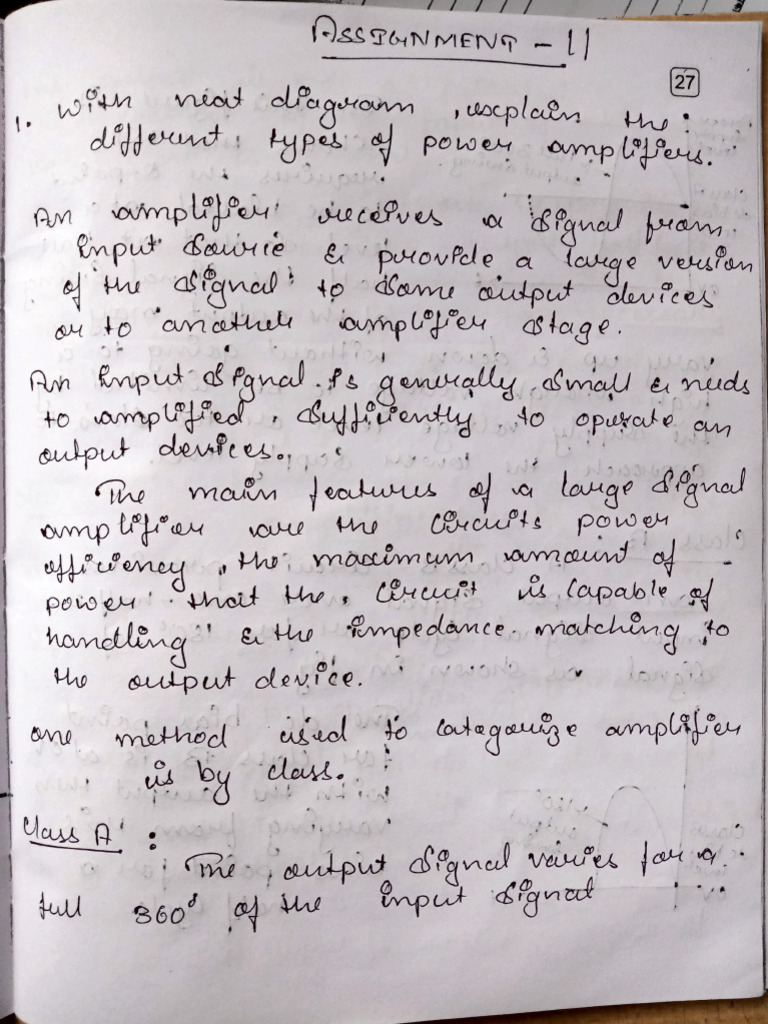 ASSIGNMENT - 11
27
1. with neat diagram, explain the
different types of power amplifiers.
An amplifier receives a signal from
input source & provide a large version
of the signal to some output devices
or to another amplifier stage.
An input signal is generally small & needs
to amplified sufficiently to operate an
output devices.
The main features of a large signal
amplifier are the circuits power
efficiency, the maximum amount of
power that the circuit is capable of
handling & the impedance matching to
the output device.
one method used to catagorize amplifier
is by class.
Class A :
The output signal varies for a
full 360° of the input signal